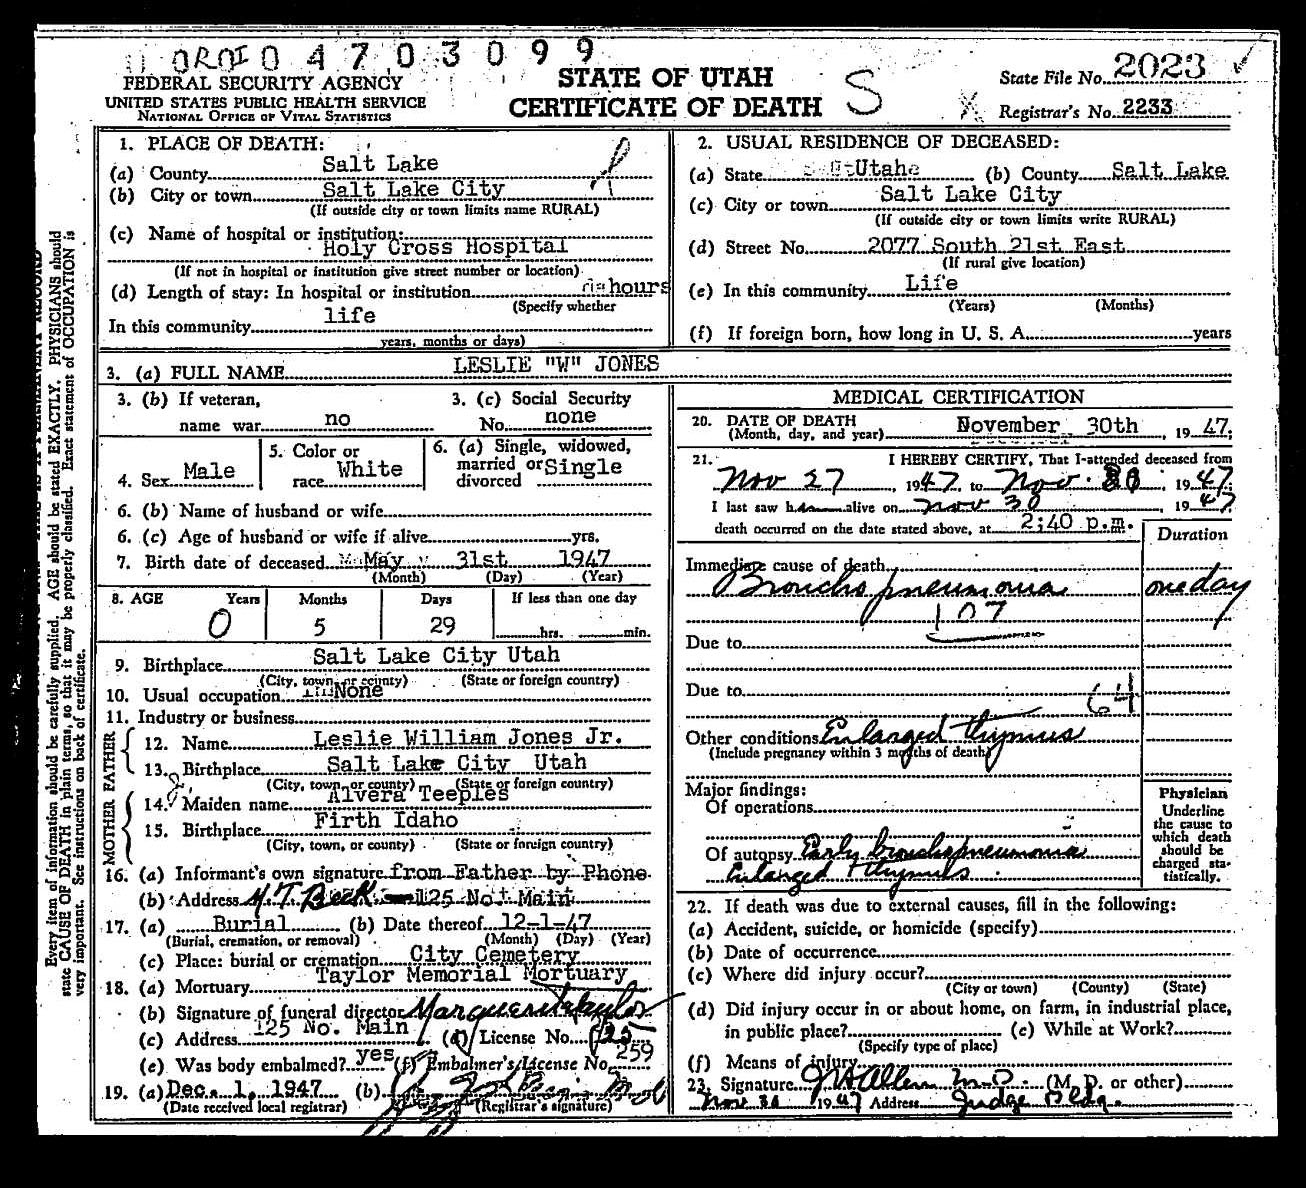 0 4 7 0 3 0 9 9
FEDERAL SECURITY AGENCY
UNITED STATES PUBLIC HEALTH SERVICE
NATIONAL OFFICE OF VITAL STATISTICS
STATE OF UTAH
CERTIFICATE OF DEATH
S
State File No. 2023
Registrar's No. 2233
Every item of information should be carefully supplied. AGE should be stated EXACTLY. PHYSICIANS should
state CAUSE OF DEATH in plain terms, so that it may be properly classified. Exact statement of OCCUPATION is
very important. See instructions on back of certificate.
1. PLACE OF DEATH:
(a) County Salt Lake
(b) City or town Salt Lake City
(If outside city or town limits name RURAL)
(c) Name of hospital or institution:
Holy Cross Hospital
(If not in hospital or institution give street number or location)
(d) Length of stay: In hospital or institution hours
(Specify whether
In this community life
years, months or days)
2. USUAL RESIDENCE OF DECEASED:
(a) State Utah (b) County Salt Lake
(c) City or town Salt Lake City
(If outside city or town limits write RURAL)
(d) Street No. 2077 South 21st East
(If rural give location)
(e) In this community Life
(Years) (Months)
(f) If foreign born, how long in U. S. A. years
3. (a) FULL NAME LESLIE "W" JONES
3. (b) If veteran,
name war no
3. (c) Social Security
No. none
4. Sex Male
5. Color or
race White
6. (a) Single, widowed,
married or
divorced Single
6. (b) Name of husband or wife
6. (c) Age of husband or wife if alive yrs.
7. Birth date of deceased May 31st 1947
(Month) (Day) (Year)
8. AGE Years Months Days If less than one day
0 5 29 hrs. min.
9. Birthplace Salt Lake City Utah
(City, town or county) (State or foreign country)
10. Usual occupation None
11. Industry or business
FATHER
12. Name Leslie William Jones Jr.
13. Birthplace Salt Lake City Utah
(City, town or county) (State or foreign country)
MOTHER
14. Maiden name Alvera Teeples
15. Birthplace Firth Idaho
(City, town, or county) (State or foreign country)
16. (a) Informant's own signature from Father by Phone
(b) Address H.T. Beck 125 No. Main
17. (a) Burial (b) Date thereof 12-1-47
(Burial, cremation, or removal) (Month) (Day) (Year)
(c) Place: burial or cremation City Cemetery
18. (a) Mortuary Taylor Memorial Mortuary
(b) Signature of funeral director
(c) Address 125 No. Main (d) License No.
(e) Was body embalmed? yes (f) Embalmer's License No. 259
19. (a) Dec. 1, 1947 (b)
(Date received local registrar) (Registrar's signature)
MEDICAL CERTIFICATION
20. DATE OF DEATH
(Month, day, and year) November 30th, 1947.
21. I HEREBY CERTIFY, That I attended deceased from
Nov 27, 1947, to Nov. 30, 1947.
I last saw h alive on Nov 30, 1947
death occurred on the date stated above, at 2:40 p.m.
Duration
Immediate cause of death
Bronchopneumonia one day
107
Due to
Due to
64
Other conditions Enlarged thymus
(Include pregnancy within 3 months of death)
Major findings:
Of operations
Of autopsy Early bronchopneumonia
Enlarged thymus.
Physician
Underline
the cause to
which death
should be
charged sta-
tistically.
22. If death was due to external causes, fill in the following:
(a) Accident, suicide, or homicide (specify)
(b) Date of occurrence
(c) Where did injury occur?
(City or town) (County) (State)
(d) Did injury occur in or about home, on farm, in industrial place,
in public place? (e) While at Work?
(Specify type of place)
(f) Means of injury
23. Signature J H Allen M.D. (M. D. or other)
Nov 30 1947 Address Judge Bldg.